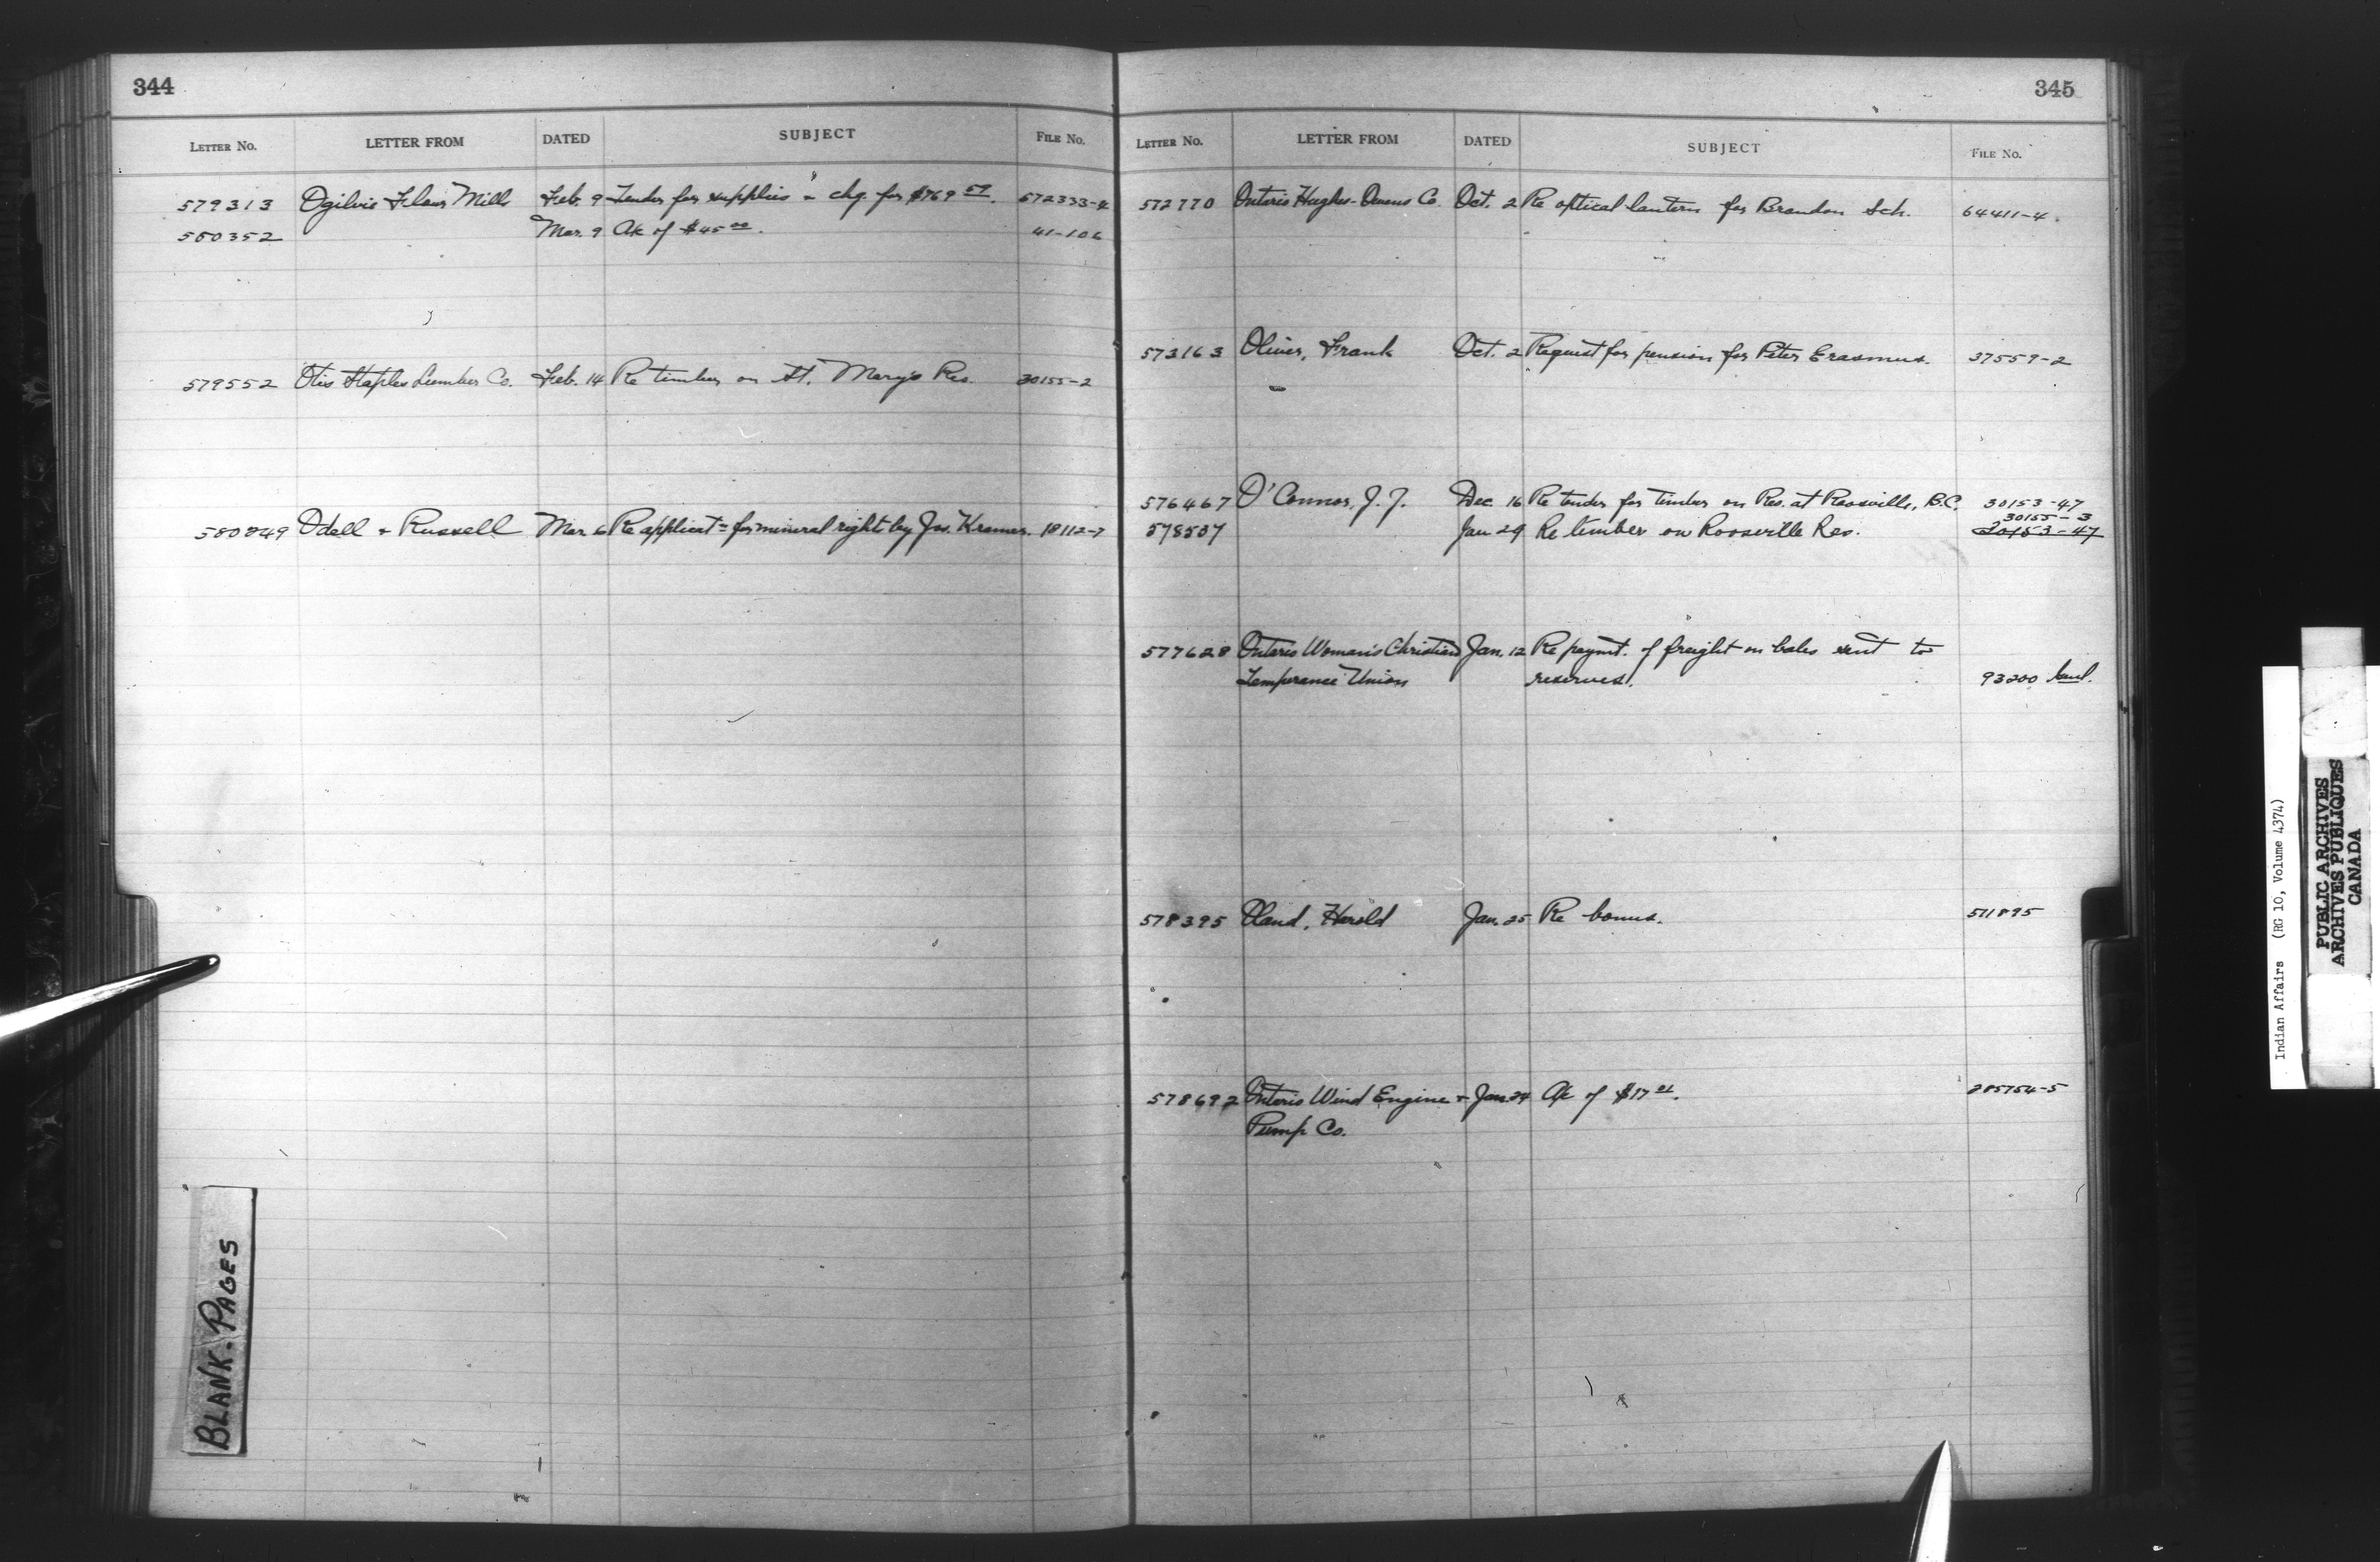 344
LETTER No. LETTER FROM DATED SUBJECT FILE No.
579313 Ogilvie Flour Mills Feb. 9 Tender for supplies & chq. for $769 57. 572333-4
580352 Mar. 9 A/c of $45 00. 41-106
579552 Otis Staples Lumber Co. Feb. 14 Re timber on St. Mary's Res. 30155-2
580849 Odell & Russell Mar. 6 Re applicatn for mineral right by Jas. Kramer. 18112-7
BLANK-PAGES
345
LETTER No. LETTER FROM DATED SUBJECT FILE No.
572770 Ontario Hughes-Owens Co. Oct. 2 Re optical lantern for Brandon Sch. 64411-4.
573163 Oliver, Frank Oct. 2 Request for pension for Peter Erasmus. 37559-2
576467 O'Connor, J. J. Dec. 16 Re tender for timber on Res. at Roosville, B.C. 30153-47
30155-3
578507 Jan 29 Re timber on Roosville Res. 30153-47
577628 Ontario Woman's Christian Jan. 12 Re paymt. of freight on bales sent to
Temperance Union reserves. 93200
578395 Oland, Harold Jan. 25 Re bonus. 511895
578692 Ontario Wind Engine & Jan. 24 A/c of $17 01. 285754-5
Pump Co.
Indian Affairs (RG 10, Volume 4374)
PUBLIC ARCHIVES
ARCHIVES PUBLIQUES
CANADA